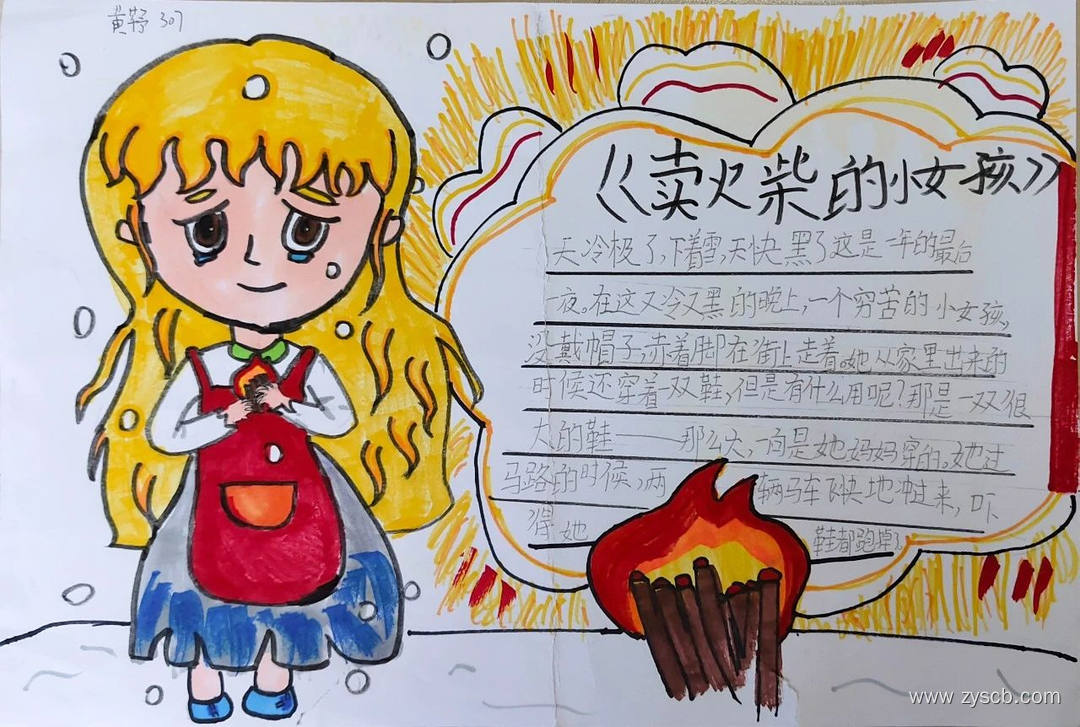 黄 307
《卖火柴的小女孩》
天冷极了,下着雪,天快黑了这是一年的最后
一夜。在这又冷又黑的晚上,一个穷苦的小女孩,
没戴帽子,赤着脚在街上走着。她从家里出来的
时候还穿着一双鞋,但是有什么用呢?那是一双很
大的鞋——那么大,一向是她妈妈穿的。她过
马路的时候,两辆马车飞快地冲过来,吓
得她鞋都跑掉了
www.zyscb.com